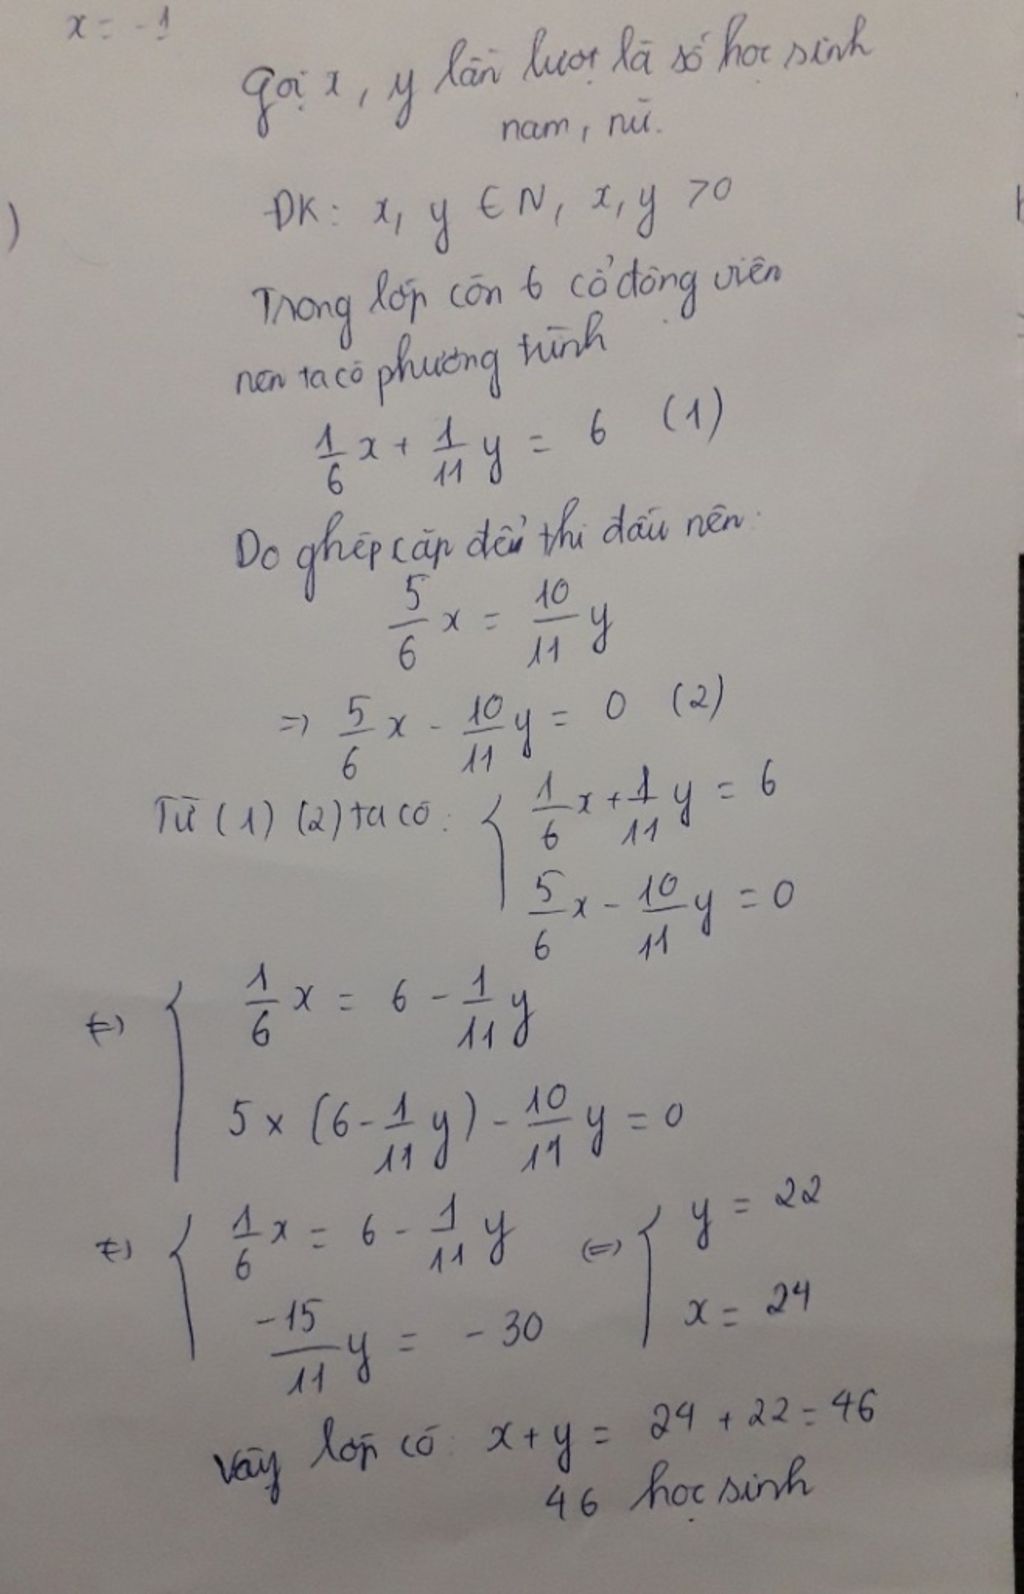 x = -1
Gọi x, y lần lượt là số học sinh
nam, nữ.
)
ĐK: x, y ∈ N, x, y >0
Trong lớp còn 6 cổ động viên
nên ta có phương trình
1/6 x + 1/11 y = 6 (1)
Do ghép cặp để thi đấu nên:
5/6 x = 10/11 y
=> 5/6 x - 10/11 y = 0 (2)
Từ (1) (2) ta có: { 1/6 x + 1/11 y = 6
5/6 x - 10/11 y = 0
<=> { 1/6 x = 6 - 1/11 y
5 x (6 - 1/11 y) - 10/11 y = 0
<=> { 1/6 x = 6 - 1/11 y <=> { y = 22
-15/11 y = -30 x = 24
Vậy lớp có: x + y = 24 + 22 = 46
46 học sinh